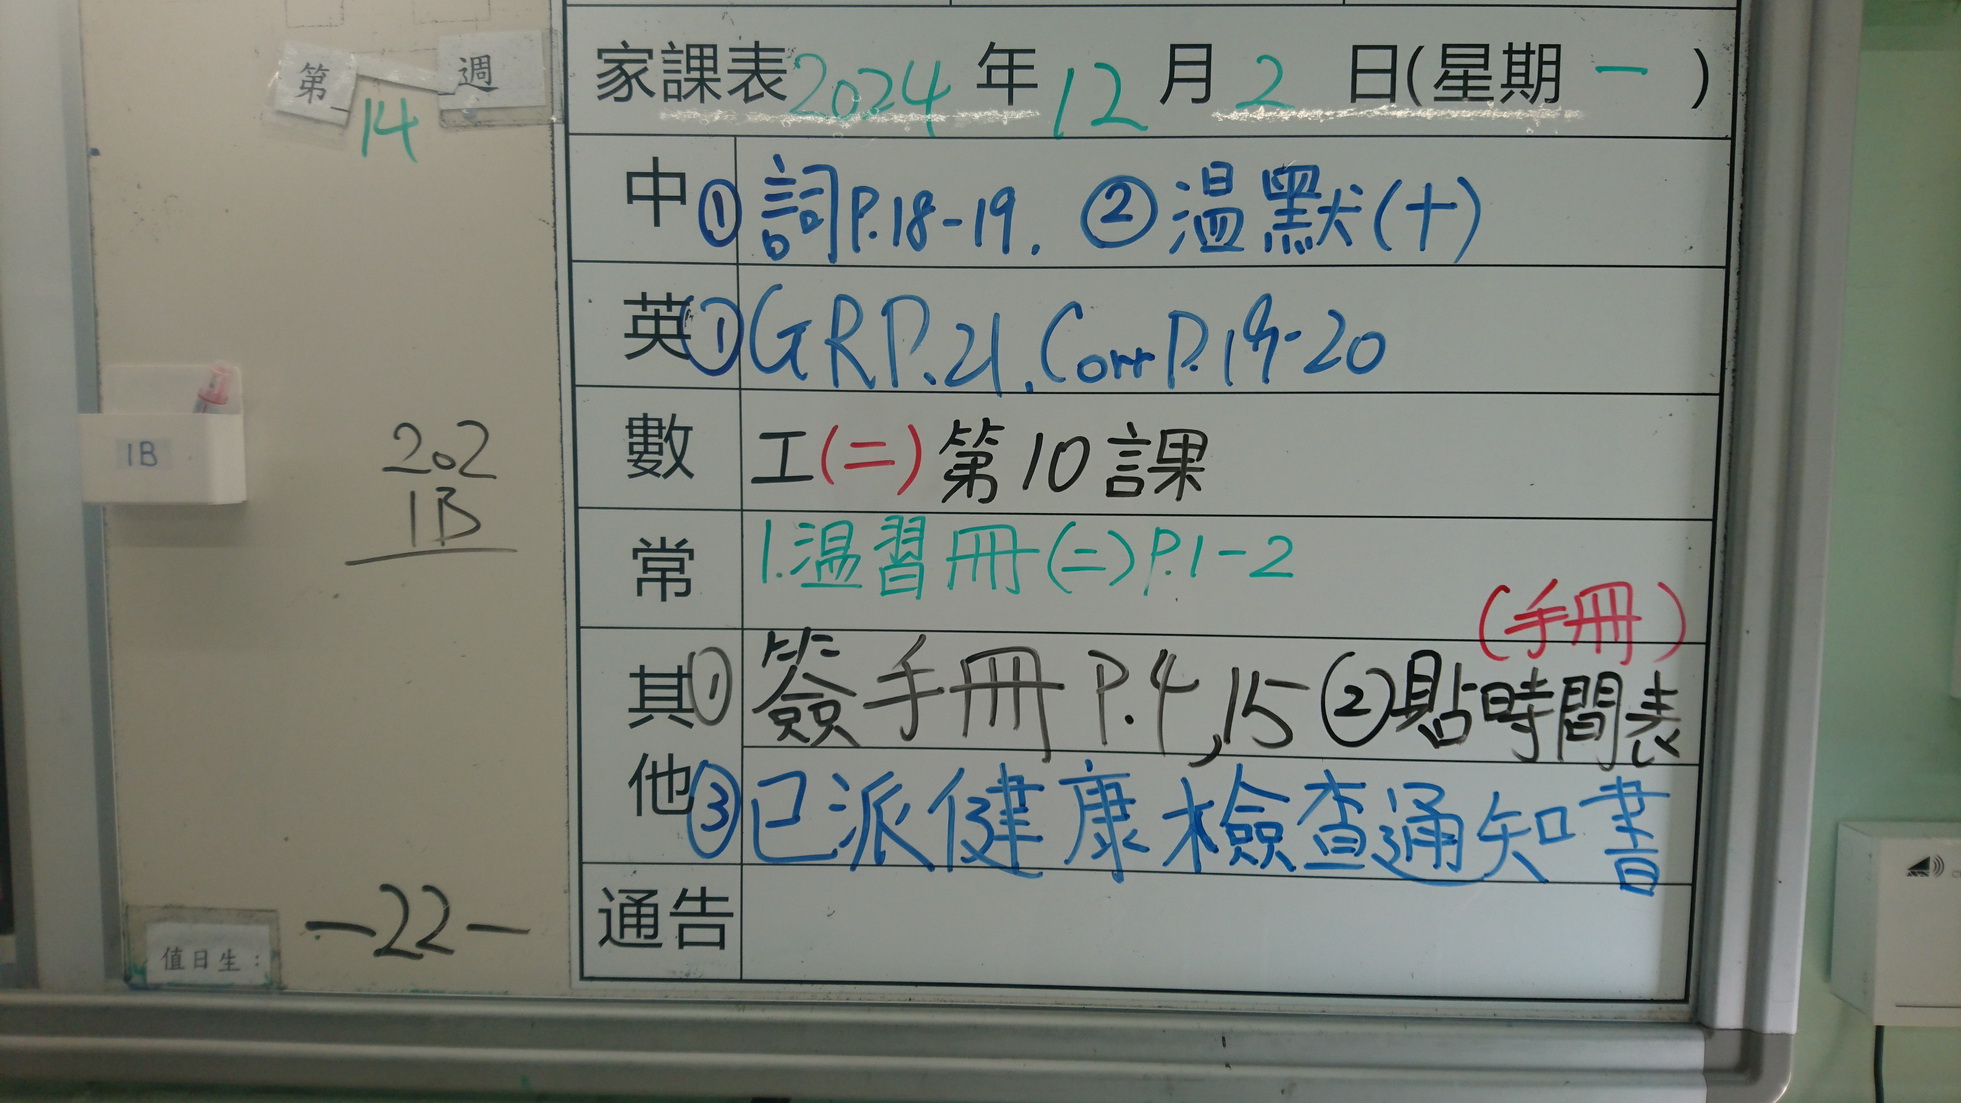 第14週
家課表2024年12月2日(星期一)
中①詞P.18-19. ②溫默(十)
英①GRP.21.CorrP.19-20
1B
202
1B
數 工(二)第10課
常 1.溫習冊(二)P.1-2
(手冊)
其他①簽手冊P.4,15②貼時間表
③已派健康檢查通知書
通告
值日生:
-22-